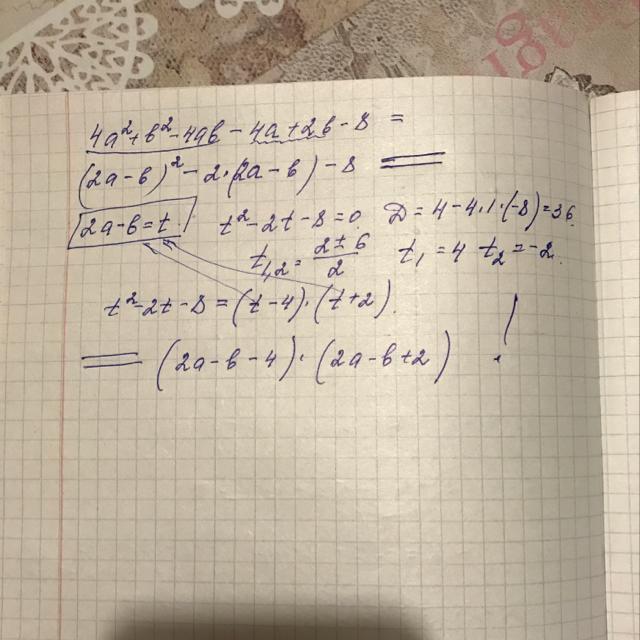 4a²+b²-4ab-4a+2b-8 =
(2a-b)²-2·(2a-b)-8 =
2a-b=t t²-2t-8=0 D=4-4·1·(-8)=36.
t₁,₂=(2±6)/2 t₁=4 t₂=-2.
t²-2t-8=(t-4)·(t+2).
= (2a-b-4)·(2a-b+2) !